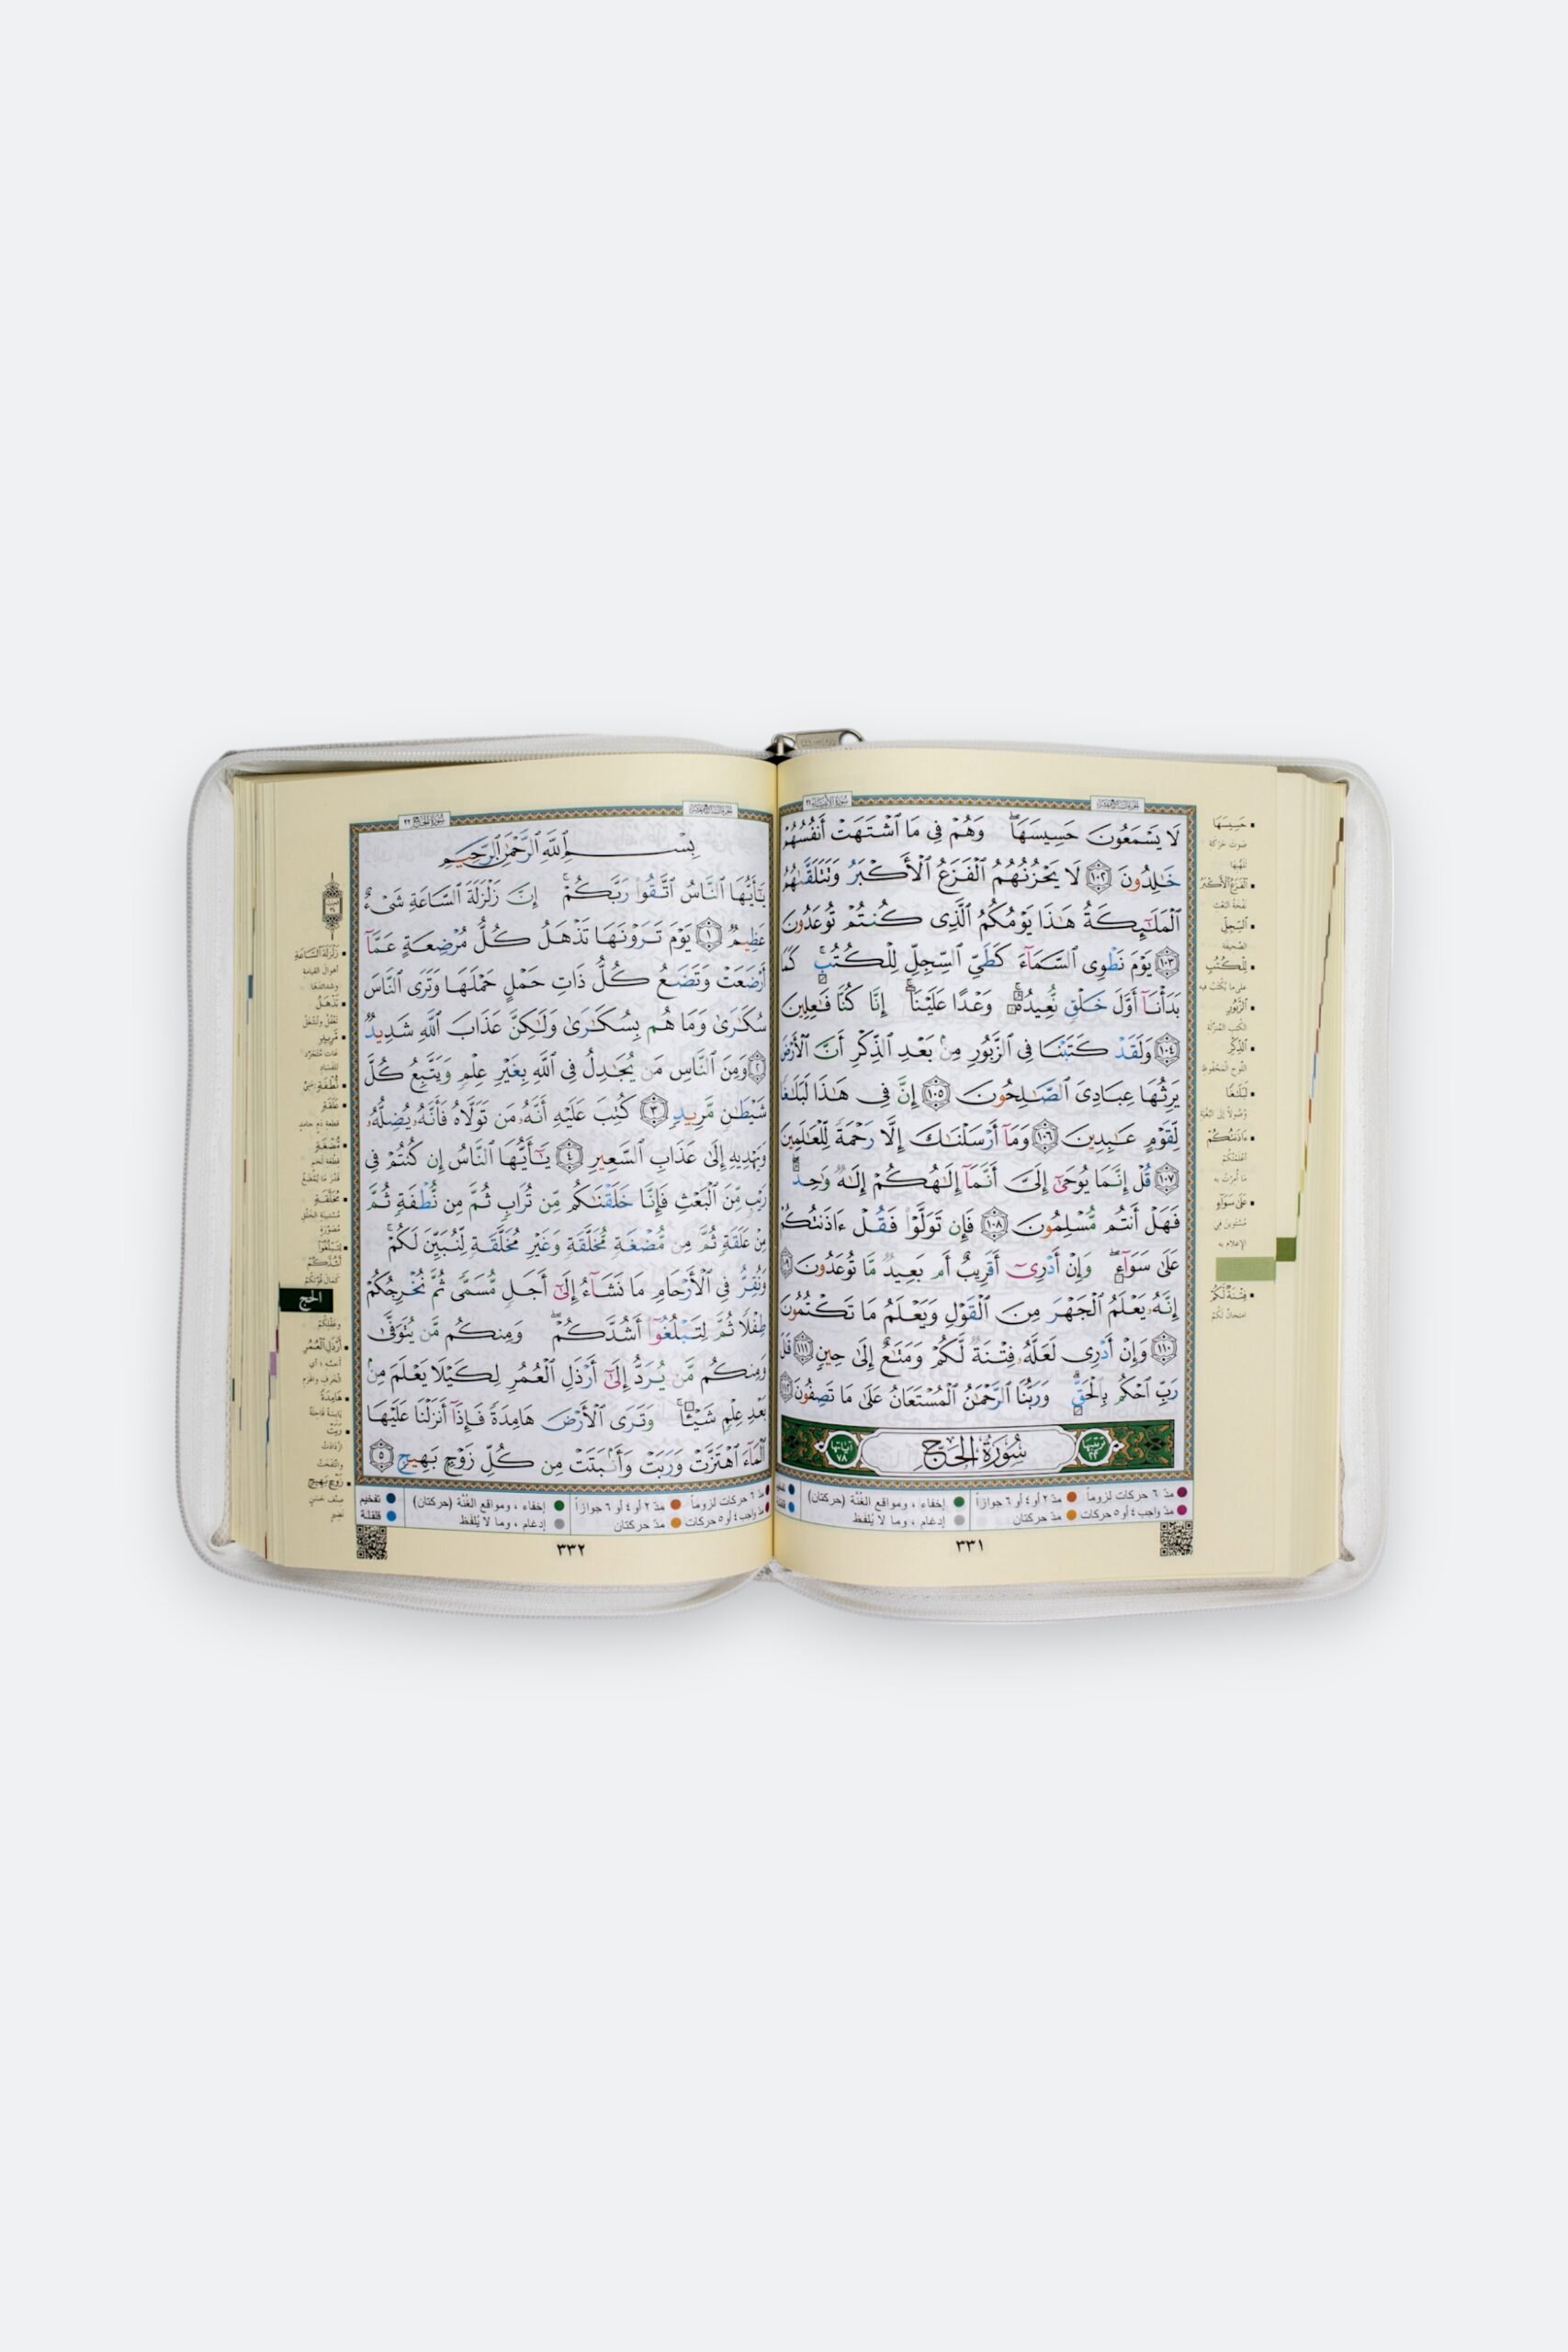 سُورَةُ الأَنبِيَاء ٢١
لَا يَسْمَعُونَ حَسِيسَهَا ۖ وَهُمْ فِي مَا ٱشْتَهَتْ أَنفُسُهُمْ
خَـٰلِدُونَ ١٠٢ لَا يَحْزُنُهُمُ ٱلْفَزَعُ ٱلْأَكْبَرُ وَتَتَلَقَّىٰهُمُ
ٱلْمَلَـٰٓئِكَةُ هَـٰذَا يَوْمُكُمُ ٱلَّذِى كُنتُمْ تُوعَدُونَ
١٠٣ يَوْمَ نَطْوِى ٱلسَّمَآءَ كَطَىِّ ٱلسِّجِلِّ لِلْكُتُبِ ۚ كَمَا
بَدَأْنَآ أَوَّلَ خَلْقٍ نُّعِيدُهُۥ ۚ وَعْدًا عَلَيْنَآ ۚ إِنَّا كُنَّا فَـٰعِلِينَ
١٠٤ وَلَقَدْ كَتَبْنَا فِى ٱلزَّبُورِ مِنۢ بَعْدِ ٱلذِّكْرِ أَنَّ ٱلْأَرْضَ
يَرِثُهَا عِبَادِىَ ٱلصَّـٰلِحُونَ ١٠٥ إِنَّ فِى هَـٰذَا لَبَلَـٰغًا
لِّقَوْمٍ عَـٰبِدِينَ ١٠٦ وَمَآ أَرْسَلْنَـٰكَ إِلَّا رَحْمَةً لِّلْعَـٰلَمِينَ
١٠٧ قُلْ إِنَّمَا يُوحَىٰٓ إِلَىَّ أَنَّمَآ إِلَـٰهُكُمْ إِلَـٰهٌ وَٰحِدٌ ۖ
فَهَلْ أَنتُم مُّسْلِمُونَ ١٠٨ فَإِن تَوَلَّوْا۟ فَقُلْ ءَاذَنتُكُمْ
عَلَىٰ سَوَآءٍ ۖ وَإِنْ أَدْرِىٓ أَقَرِيبٌ أَم بَعِيدٌ مَّا تُوعَدُونَ ١٠٩
إِنَّهُۥ يَعْلَمُ ٱلْجَهْرَ مِنَ ٱلْقَوْلِ وَيَعْلَمُ مَا تَكْتُمُونَ
١١٠ وَإِنْ أَدْرِى لَعَلَّهُۥ فِتْنَةٌ لَّكُمْ وَمَتَـٰعٌ إِلَىٰ حِينٍ ١١١ قَـٰلَ
رَبِّ ٱحْكُم بِٱلْحَقِّ ۗ وَرَبُّنَا ٱلرَّحْمَـٰنُ ٱلْمُسْتَعَانُ عَلَىٰ مَا تَصِفُونَ ١١٢
ترتيبها ٢٢ سُورَةُ الحَجّ آياتها ٧٨
مدّ ٦ حركات لزوماً مدّ ٢ أو ٤ أو ٦ جوازاً إخفاء ، ومواقع الغُنّة (حركتان)
مدّ واجب ٤ أو ٥ حركات مدّ حركتان إدغام ، وما لا يُلفَظ
٣٣١
حَسِيسَهَا
صوت حركة
الْفَزَعُ الْأَكْبَرُ
نفخة البعث
السِّجِلِّ
الصّحيفة
لِلْكُتُبِ
على ما كُتب فيه
الزَّبُورِ
الكتب المنزّلة
الذِّكْرِ
اللوح المحفوظ
لَبَلَاغًا
وصولاً إلى البغية
ءَاذَنتُكُمْ
أعلمتكم
ما أمرت به
عَلَى سَوَاءٍ
مستوين في
الإعلام به
فِتْنَةٌ لَّكُمْ
امتحانٌ لكم
سُورَةُ الحَجّ ٢٢
بِسْمِ ٱللَّهِ ٱلرَّحْمَـٰنِ ٱلرَّحِيمِ
يَـٰٓأَيُّهَا ٱلنَّاسُ ٱتَّقُوا۟ رَبَّكُمْ ۚ إِنَّ زَلْزَلَةَ ٱلسَّاعَةِ شَىْءٌ
عَظِيمٌ ١ يَوْمَ تَرَوْنَهَا تَذْهَلُ كُلُّ مُرْضِعَةٍ عَمَّآ
أَرْضَعَتْ وَتَضَعُ كُلُّ ذَاتِ حَمْلٍ حَمْلَهَا وَتَرَى ٱلنَّاسَ
سُكَـٰرَىٰ وَمَا هُم بِسُكَـٰرَىٰ وَلَـٰكِنَّ عَذَابَ ٱللَّهِ شَدِيدٌ
٢ وَمِنَ ٱلنَّاسِ مَن يُجَـٰدِلُ فِى ٱللَّهِ بِغَيْرِ عِلْمٍ وَيَتَّبِعُ كُلَّ
شَيْطَـٰنٍ مَّرِيدٍ ٣ كُتِبَ عَلَيْهِ أَنَّهُۥ مَن تَوَلَّاهُ فَأَنَّهُۥ يُضِلُّهُۥ
وَيَهْدِيهِ إِلَىٰ عَذَابِ ٱلسَّعِيرِ ٤ يَـٰٓأَيُّهَا ٱلنَّاسُ إِن كُنتُمْ فِى
رَيْبٍ مِّنَ ٱلْبَعْثِ فَإِنَّا خَلَقْنَـٰكُم مِّن تُرَابٍ ثُمَّ مِن نُّطْفَةٍ ثُمَّ
مِنْ عَلَقَةٍ ثُمَّ مِن مُّضْغَةٍ مُّخَلَّقَةٍ وَغَيْرِ مُخَلَّقَةٍ لِّنُبَيِّنَ لَكُمْ ۚ
وَنُقِرُّ فِى ٱلْأَرْحَامِ مَا نَشَآءُ إِلَىٰٓ أَجَلٍ مُّسَمًّى ثُمَّ نُخْرِجُكُمْ
طِفْلًا ثُمَّ لِتَبْلُغُوٓا۟ أَشُدَّكُمْ ۖ وَمِنكُم مَّن يُتَوَفَّىٰ
وَمِنكُم مَّن يُرَدُّ إِلَىٰٓ أَرْذَلِ ٱلْعُمُرِ لِكَيْلَا يَعْلَمَ مِنۢ
بَعْدِ عِلْمٍ شَيْـًٔا ۚ وَتَرَى ٱلْأَرْضَ هَامِدَةً فَإِذَآ أَنزَلْنَا عَلَيْهَا
ٱلْمَآءَ ٱهْتَزَّتْ وَرَبَتْ وَأَنۢبَتَتْ مِن كُلِّ زَوْجٍۭ بَهِيجٍ ٥
مدّ ٦ حركات لزوماً مدّ ٢ أو ٤ أو ٦ جوازاً إخفاء ، ومواقع الغُنّة (حركتان) تفخيم
مدّ واجب ٤ أو ٥ حركات مدّ حركتان إدغام ، وما لا يُلفَظ قلقلة
٣٣٢
زَلْزَلَةَ السَّاعَةِ
أهوال القيامة
وشدائدها
تَذْهَلُ
تغفل وتُشغل
مَّرِيدٍ
عاتٍ متمرّد
نُّطْفَةٍ
عَلَقَةٍ
قطعة دم جامد
مُّضْغَةٍ
قطعة لحم
مُّخَلَّقَةٍ
مستبينة الخلق
مصوّرة
لِتَبْلُغُوا
أَشُدَّكُمْ
كمال قوّتكم
الحج
وعقلكم
أَرْذَلِ الْعُمُرِ
هَامِدَةً
يابسة قاحلة
رَبَتْ
ازدادت
وانتفخت
زَوْجٍ بَهِيجٍ
صنف حسن
نضير